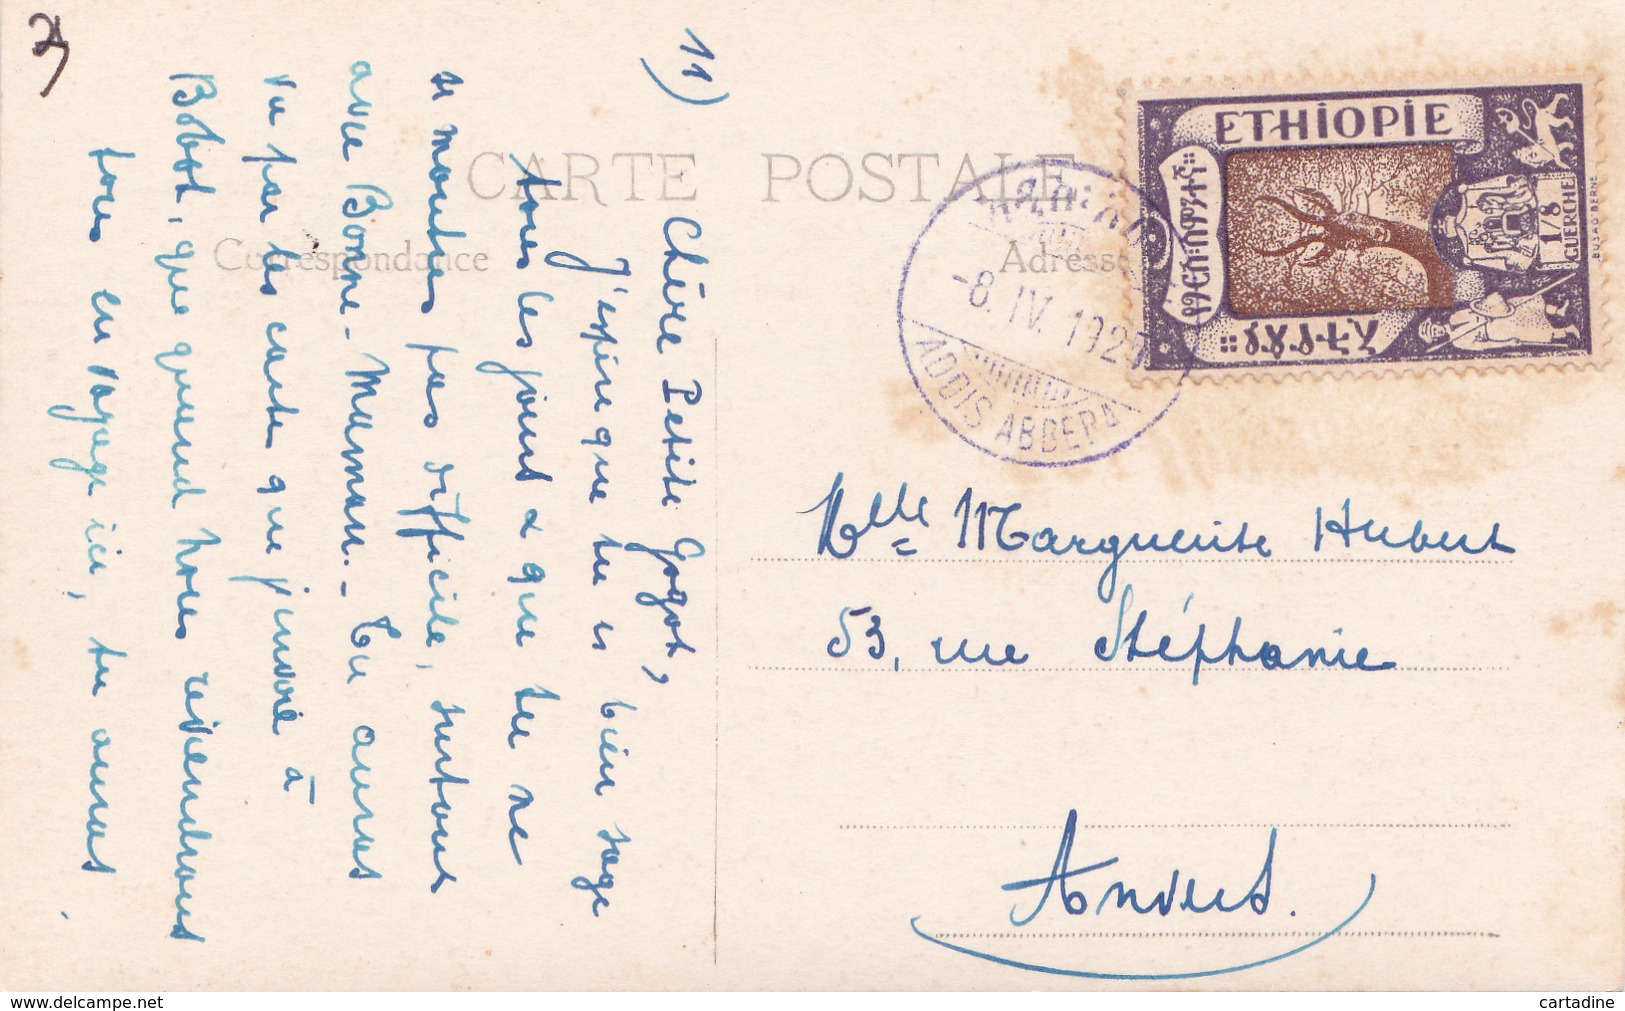 CARTE POSTALE
Correspondance
Adresse
11)
Chère Petite Gogot,
J'espère que tu es bien sage
tous les jours & que tu ne
te montres pas difficile, surtout
avec Bonne-Maman. Tu auras
vu par les cartes que j'envoie à
Bobot, que quand nous reviendrons
tous en voyage ici, tu auras
ETHIOPIE
ኢትዮጵያ።
1/8
GUERCHE
BUSAG BERNE
-8. IV. 192
ADDIS ABBEBA
Mlle Marguerite Hubert
53, rue Stéphanie
Anvers.
www.delcampe.net
cartadine